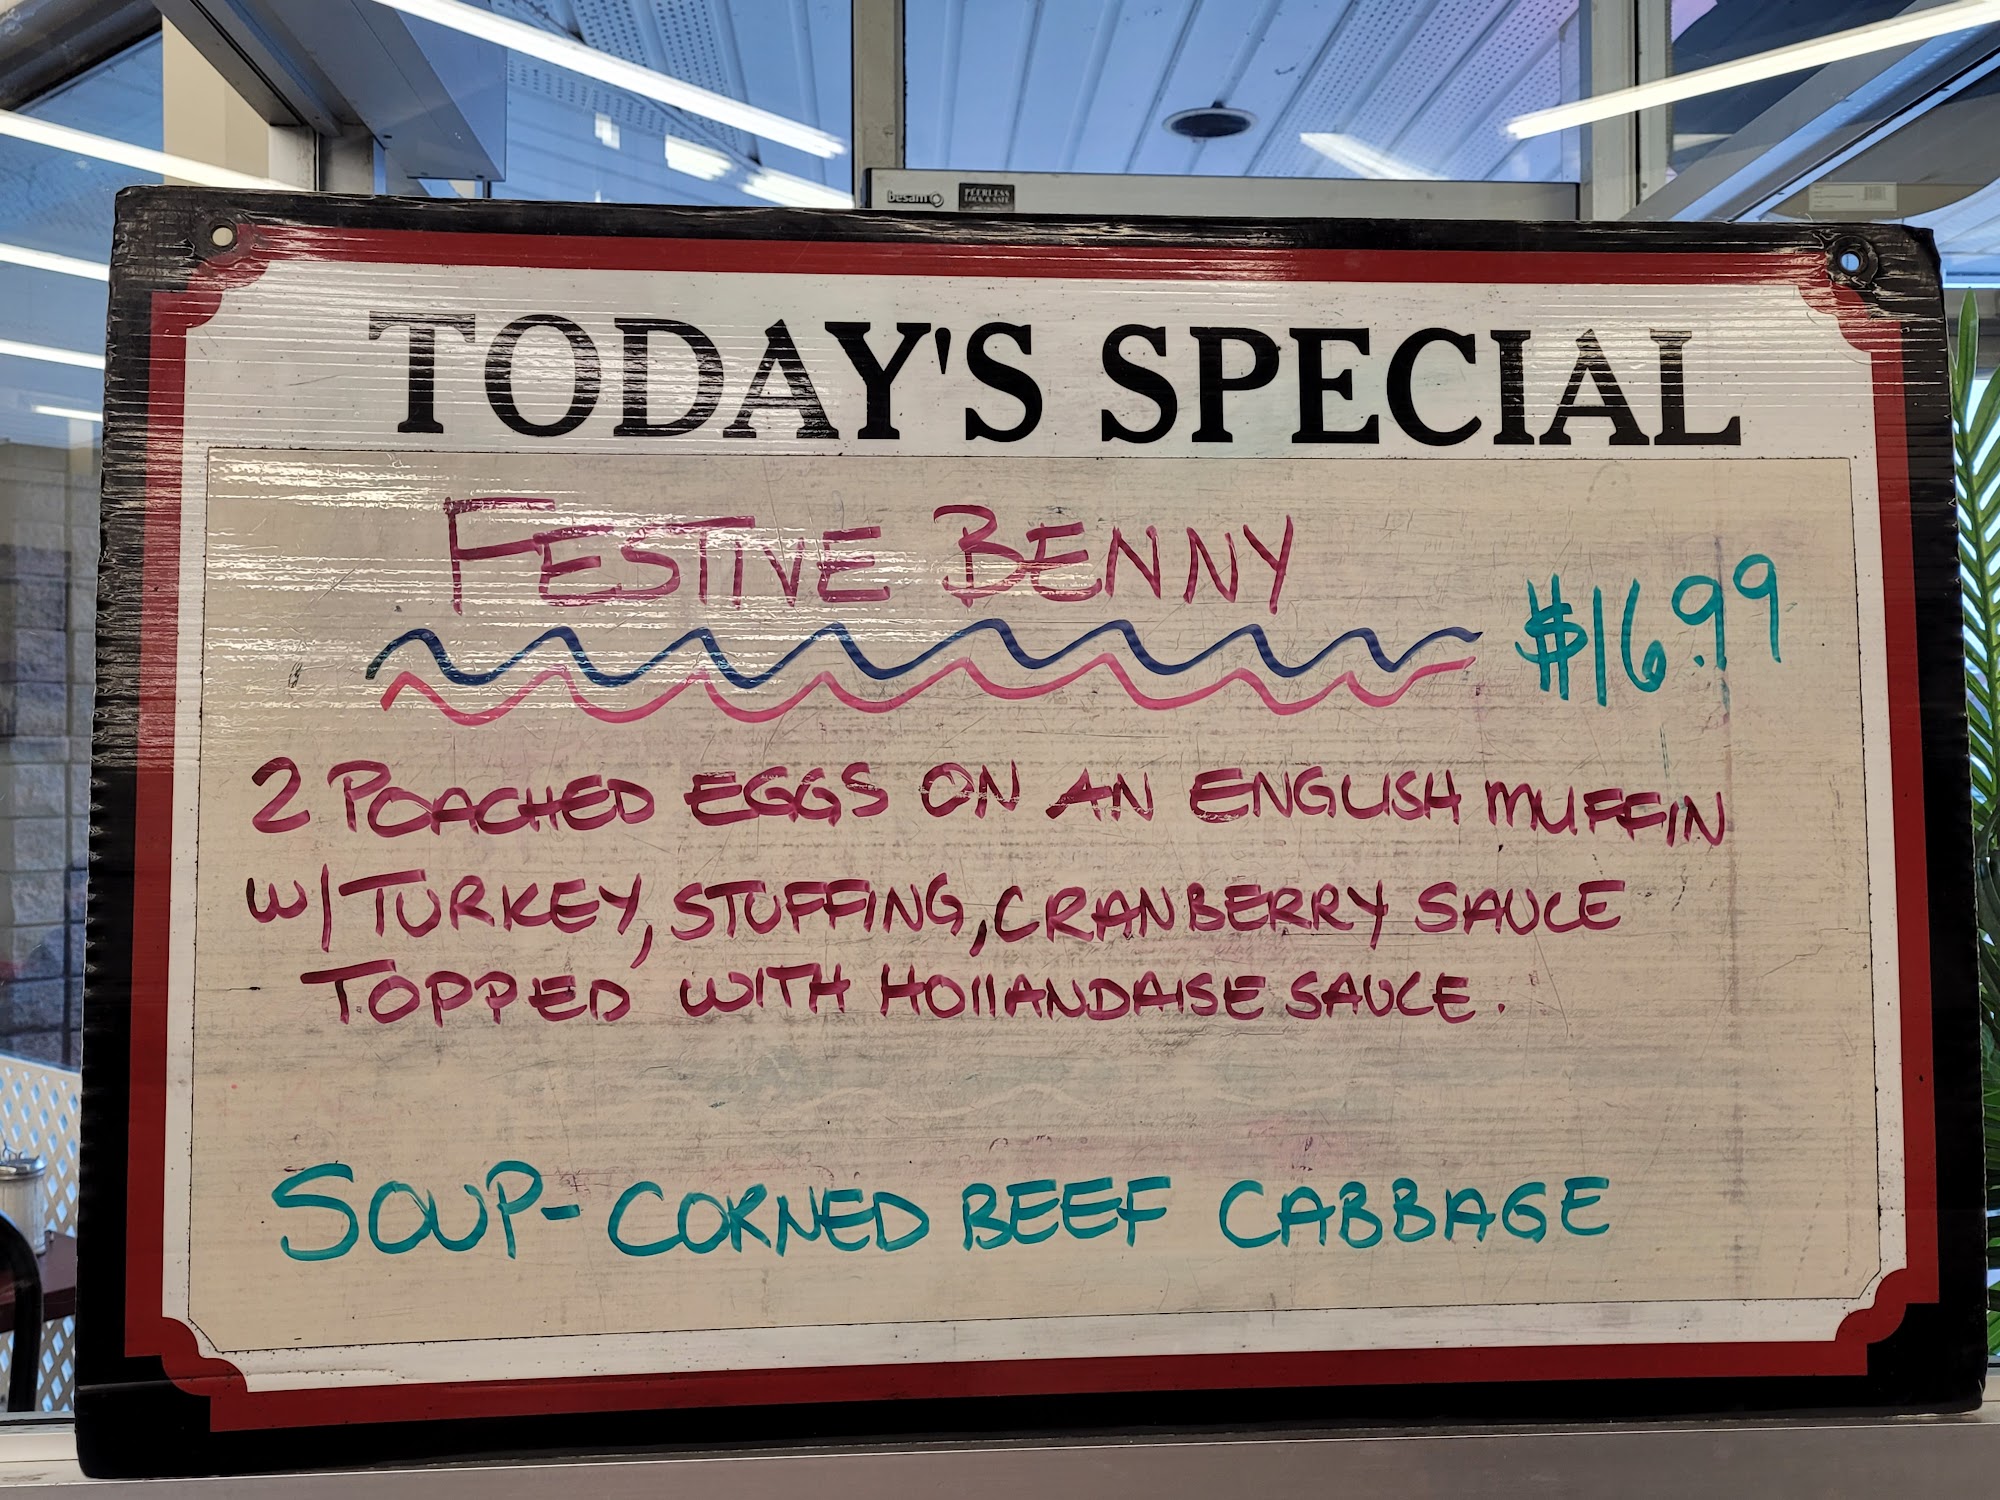 besam
PEERLESS
LOCK & SAFE
TODAY'S SPECIAL
FESTIVE BENNY
$16.99
2 POACHED EGGS ON AN ENGLISH MUFFIN
W/ TURKEY, STUFFING, CRANBERRY SAUCE
TOPPED WITH HOLLANDAISE SAUCE.
SOUP- CORNED BEEF CABBAGE